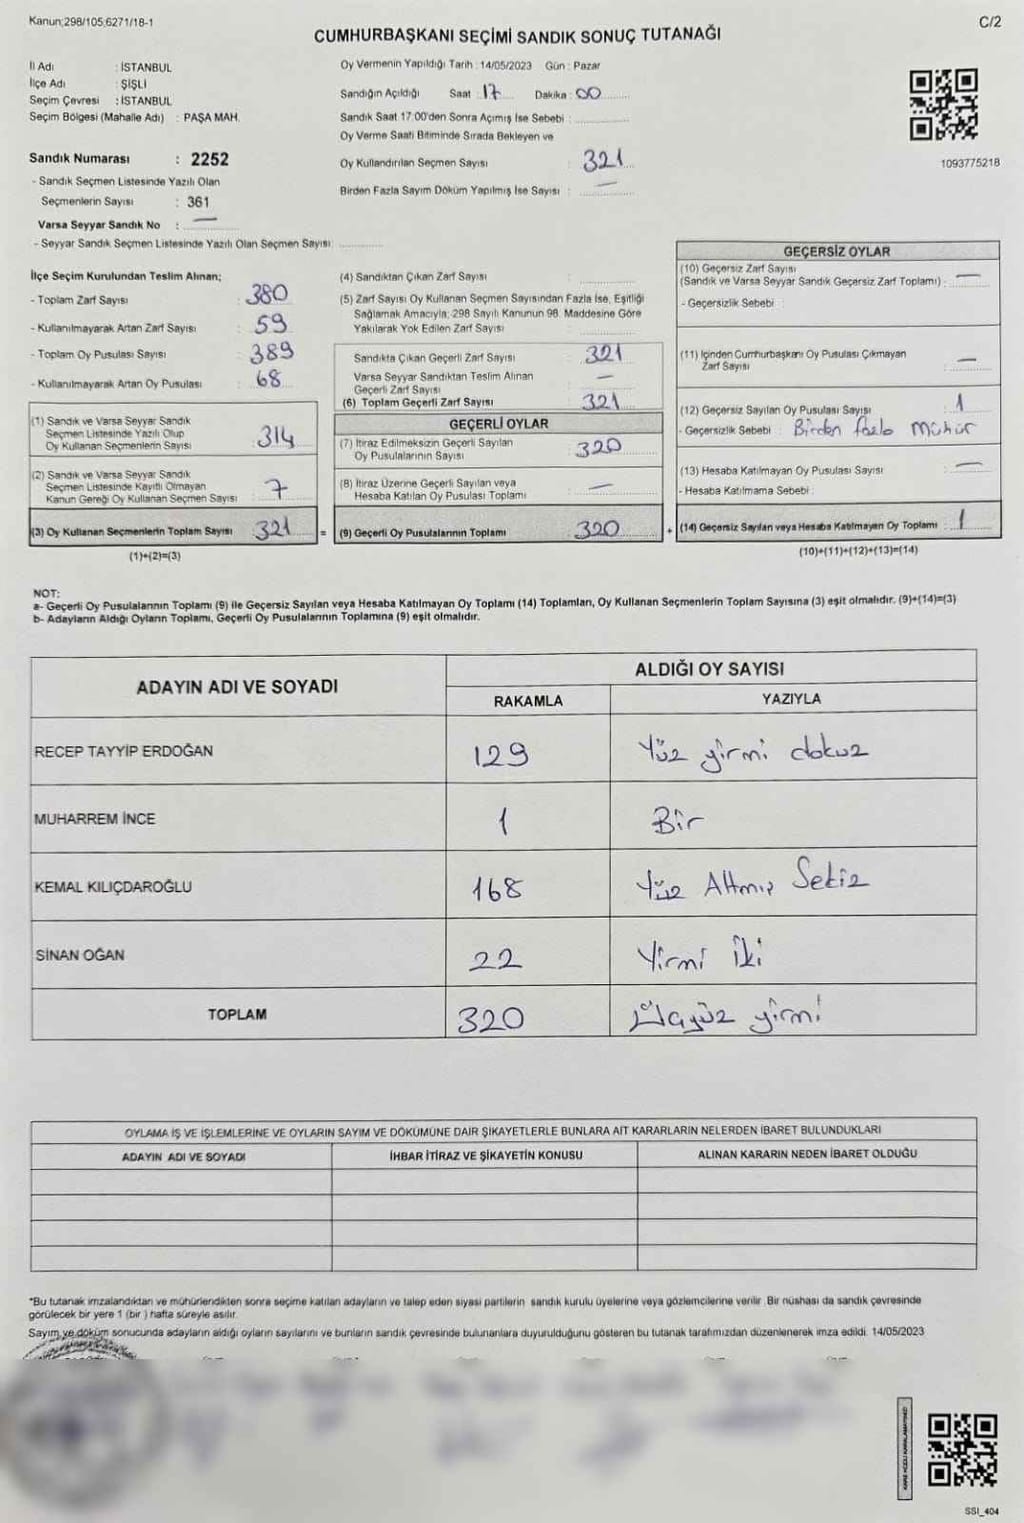 Kanun;298/105,6271/18-1
C/2
CUMHURBAŞKANI SEÇİMİ SANDIK SONUÇ TUTANAĞI
İl Adı : İSTANBUL
İlçe Adı : ŞİŞLİ
Seçim Çevresi : İSTANBUL
Seçim Bölgesi (Mahalle Adı) : PAŞA MAH.
Sandık Numarası : 2252
- Sandık Seçmen Listesinde Yazılı Olan
Seçmenlerin Sayısı : 361
Varsa Seyyar Sandık No : —
- Seyyar Sandık Seçmen Listesinde Yazılı Olan Seçmen Sayısı:
Oy Vermenin Yapıldığı Tarih : 14/05/2023 Gün : Pazar
Sandığın Açıldığı Saat : 17 Dakika : 00
Sandık Saat 17.00'den Sonra Açımış İse Sebebi :
Oy Verme Saati Bitiminde Sırada Bekleyen ve
Oy Kullandırılan Seçmen Sayısı : 321
Birden Fazla Sayım Döküm Yapılmış İse Sayısı : —
1093775218
İlçe Seçim Kurulundan Teslim Alınan;
- Toplam Zarf Sayısı : 380
- Kullanılmayarak Artan Zarf Sayısı : 59
- Toplam Oy Pusulası Sayısı : 389
- Kullanılmayarak Artan Oy Pusulası : 68
(1) Sandık ve Varsa Seyyar Sandık
Seçmen Listesinde Yazılı Olup
Oy Kullanan Seçmenlerin Sayısı : 314
(2) Sandık ve Varsa Seyyar Sandık
Seçmen Listesinde Kayıtlı Olmayan
Kanun Gereği Oy Kullanan Seçmen Sayısı : 7
(3) Oy Kullanan Seçmenlerin Toplam Sayısı 321 =
(1)+(2)=(3)
(4) Sandıktan Çıkan Zarf Sayısı :
(5) Zarf Sayısı Oy Kullanan Seçmen Sayısından Fazla İse, Eşitliği
Sağlamak Amacıyla; 298 Sayılı Kanunun 98. Maddesine Göre
Yakılarak Yok Edilen Zarf Sayısı :
Sandıkta Çıkan Geçerli Zarf Sayısı : 321
Varsa Seyyar Sandıktan Teslim Alınan
Geçerli Zarf Sayısı : —
(6) Toplam Geçerli Zarf Sayısı : 321
GEÇERLİ OYLAR
(7) İtiraz Edilmeksizin Geçerli Sayılan
Oy Pusulalarının Sayısı : 320
(8) İtiraz Üzerine Geçerli Sayılan veya
Hesaba Katılan Oy Pusulası Toplamı : —
(9) Geçerli Oy Pusulalarının Toplamı : 320 +
GEÇERSİZ OYLAR
(10) Geçersiz Zarf Sayısı
(Sandık ve Varsa Seyyar Sandık Geçersiz Zarf Toplamı) : —
- Geçersizlik Sebebi :
(11) İçinden Cumhurbaşkanı Oy Pusulası Çıkmayan
Zarf Sayısı : —
(12) Geçersiz Sayılan Oy Pusulası Sayısı : 1
- Geçersizlik Sebebi : Birden fazla Mühür
(13) Hesaba Katılmayan Oy Pusulası Sayısı : —
- Hesaba Katılmama Sebebi :
(14) Geçersiz Sayılan veya Hesaba Katılmayan Oy Toplamı : 1
(10)+(11)+(12)+(13)=(14)
NOT:
a- Geçerli Oy Pusulalarının Toplamı (9) ile Geçersiz Sayılan veya Hesaba Katılmayan Oy Toplamı (14) Toplamları, Oy Kullanan Seçmenlerin Toplam Sayısına (3) eşit olmalıdır. (9)+(14)=(3)
b- Adayların Aldığı Oyların Toplamı, Geçerli Oy Pusulalarının Toplamına (9) eşit olmalıdır.
ADAYIN ADI VE SOYADI
ALDIĞI OY SAYISI
RAKAMLA YAZIYLA
RECEP TAYYİP ERDOĞAN 129 Yüz yirmi dokuz
MUHARREM İNCE 1 Bir
KEMAL KILIÇDAROĞLU 168 Yüz Altmış Sekiz
SİNAN OĞAN 22 Yirmi İki
TOPLAM 320 Üçyüz yirmi
OYLAMA İŞ VE İŞLEMLERİNE VE OYLARIN SAYIM VE DÖKÜMÜNE DAİR ŞİKAYETLERLE BUNLARA AİT KARARLARIN NELERDEN İBARET BULUNDUKLARI
ADAYIN ADI VE SOYADI İHBAR İTİRAZ VE ŞİKAYETİN KONUSU ALINAN KARARIN NEDEN İBARET OLDUĞU
*Bu tutanak imzalandıktan ve mühürlendikten sonra seçime katılan adayların ve talep eden siyasi partilerin sandık kurulu üyelerine veya gözlemcilerine verilir. Bir nüshası da sandık çevresinde
görülecek bir yere 1 (bir ) hafta süreyle asılır.
Sayım ve döküm sonucunda adayların aldığı oyların sayılarını ve bunların sandık çevresinde bulunanlara duyurulduğunu gösteren bu tutanak tarafımızdan düzenlenerek imza edildi. 14/05/2023
SSI_404